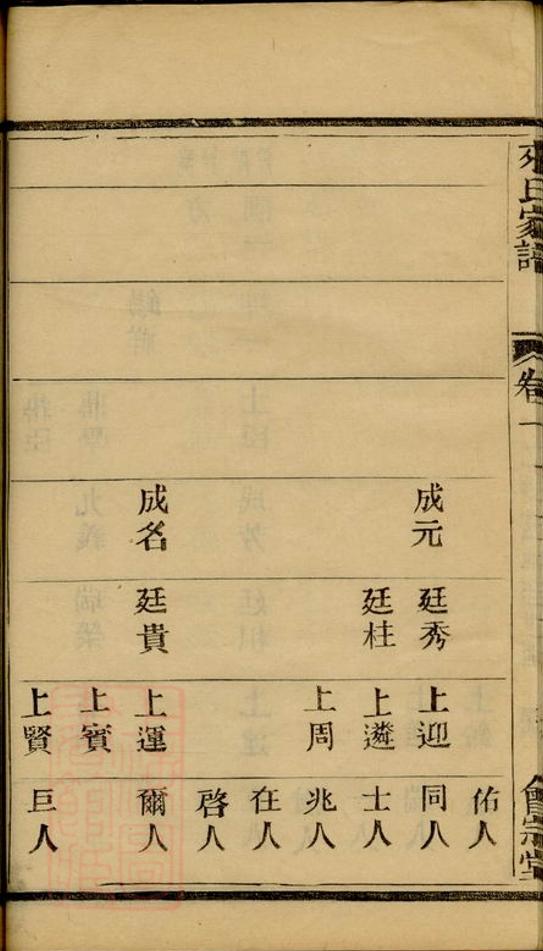 氏家譜
卷一
會宗堂
佑人
成元 廷秀 上迎 同人
廷柱 上遴 士人
上周 兆人
在人
啓人
成名 廷貴 上運 爾人
上賓
上賢 巨人